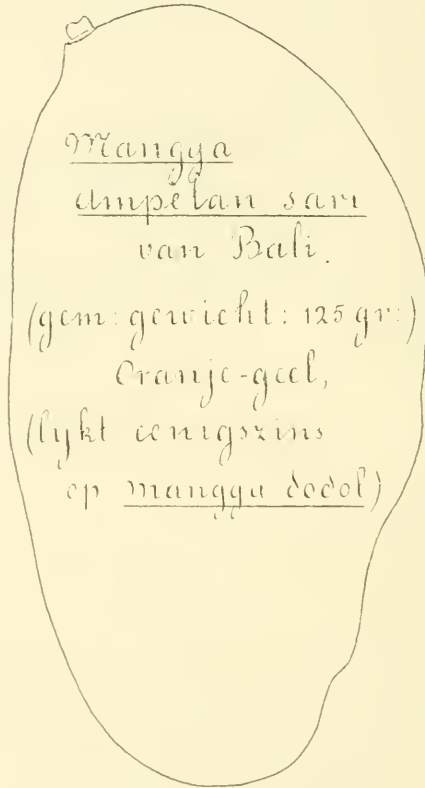 Mangga
ampĕlan sari
van Bali.
(gem: gewicht: 125 gr:)
Oranje-geel,
(lykt eenigszins
op mangga dodol)